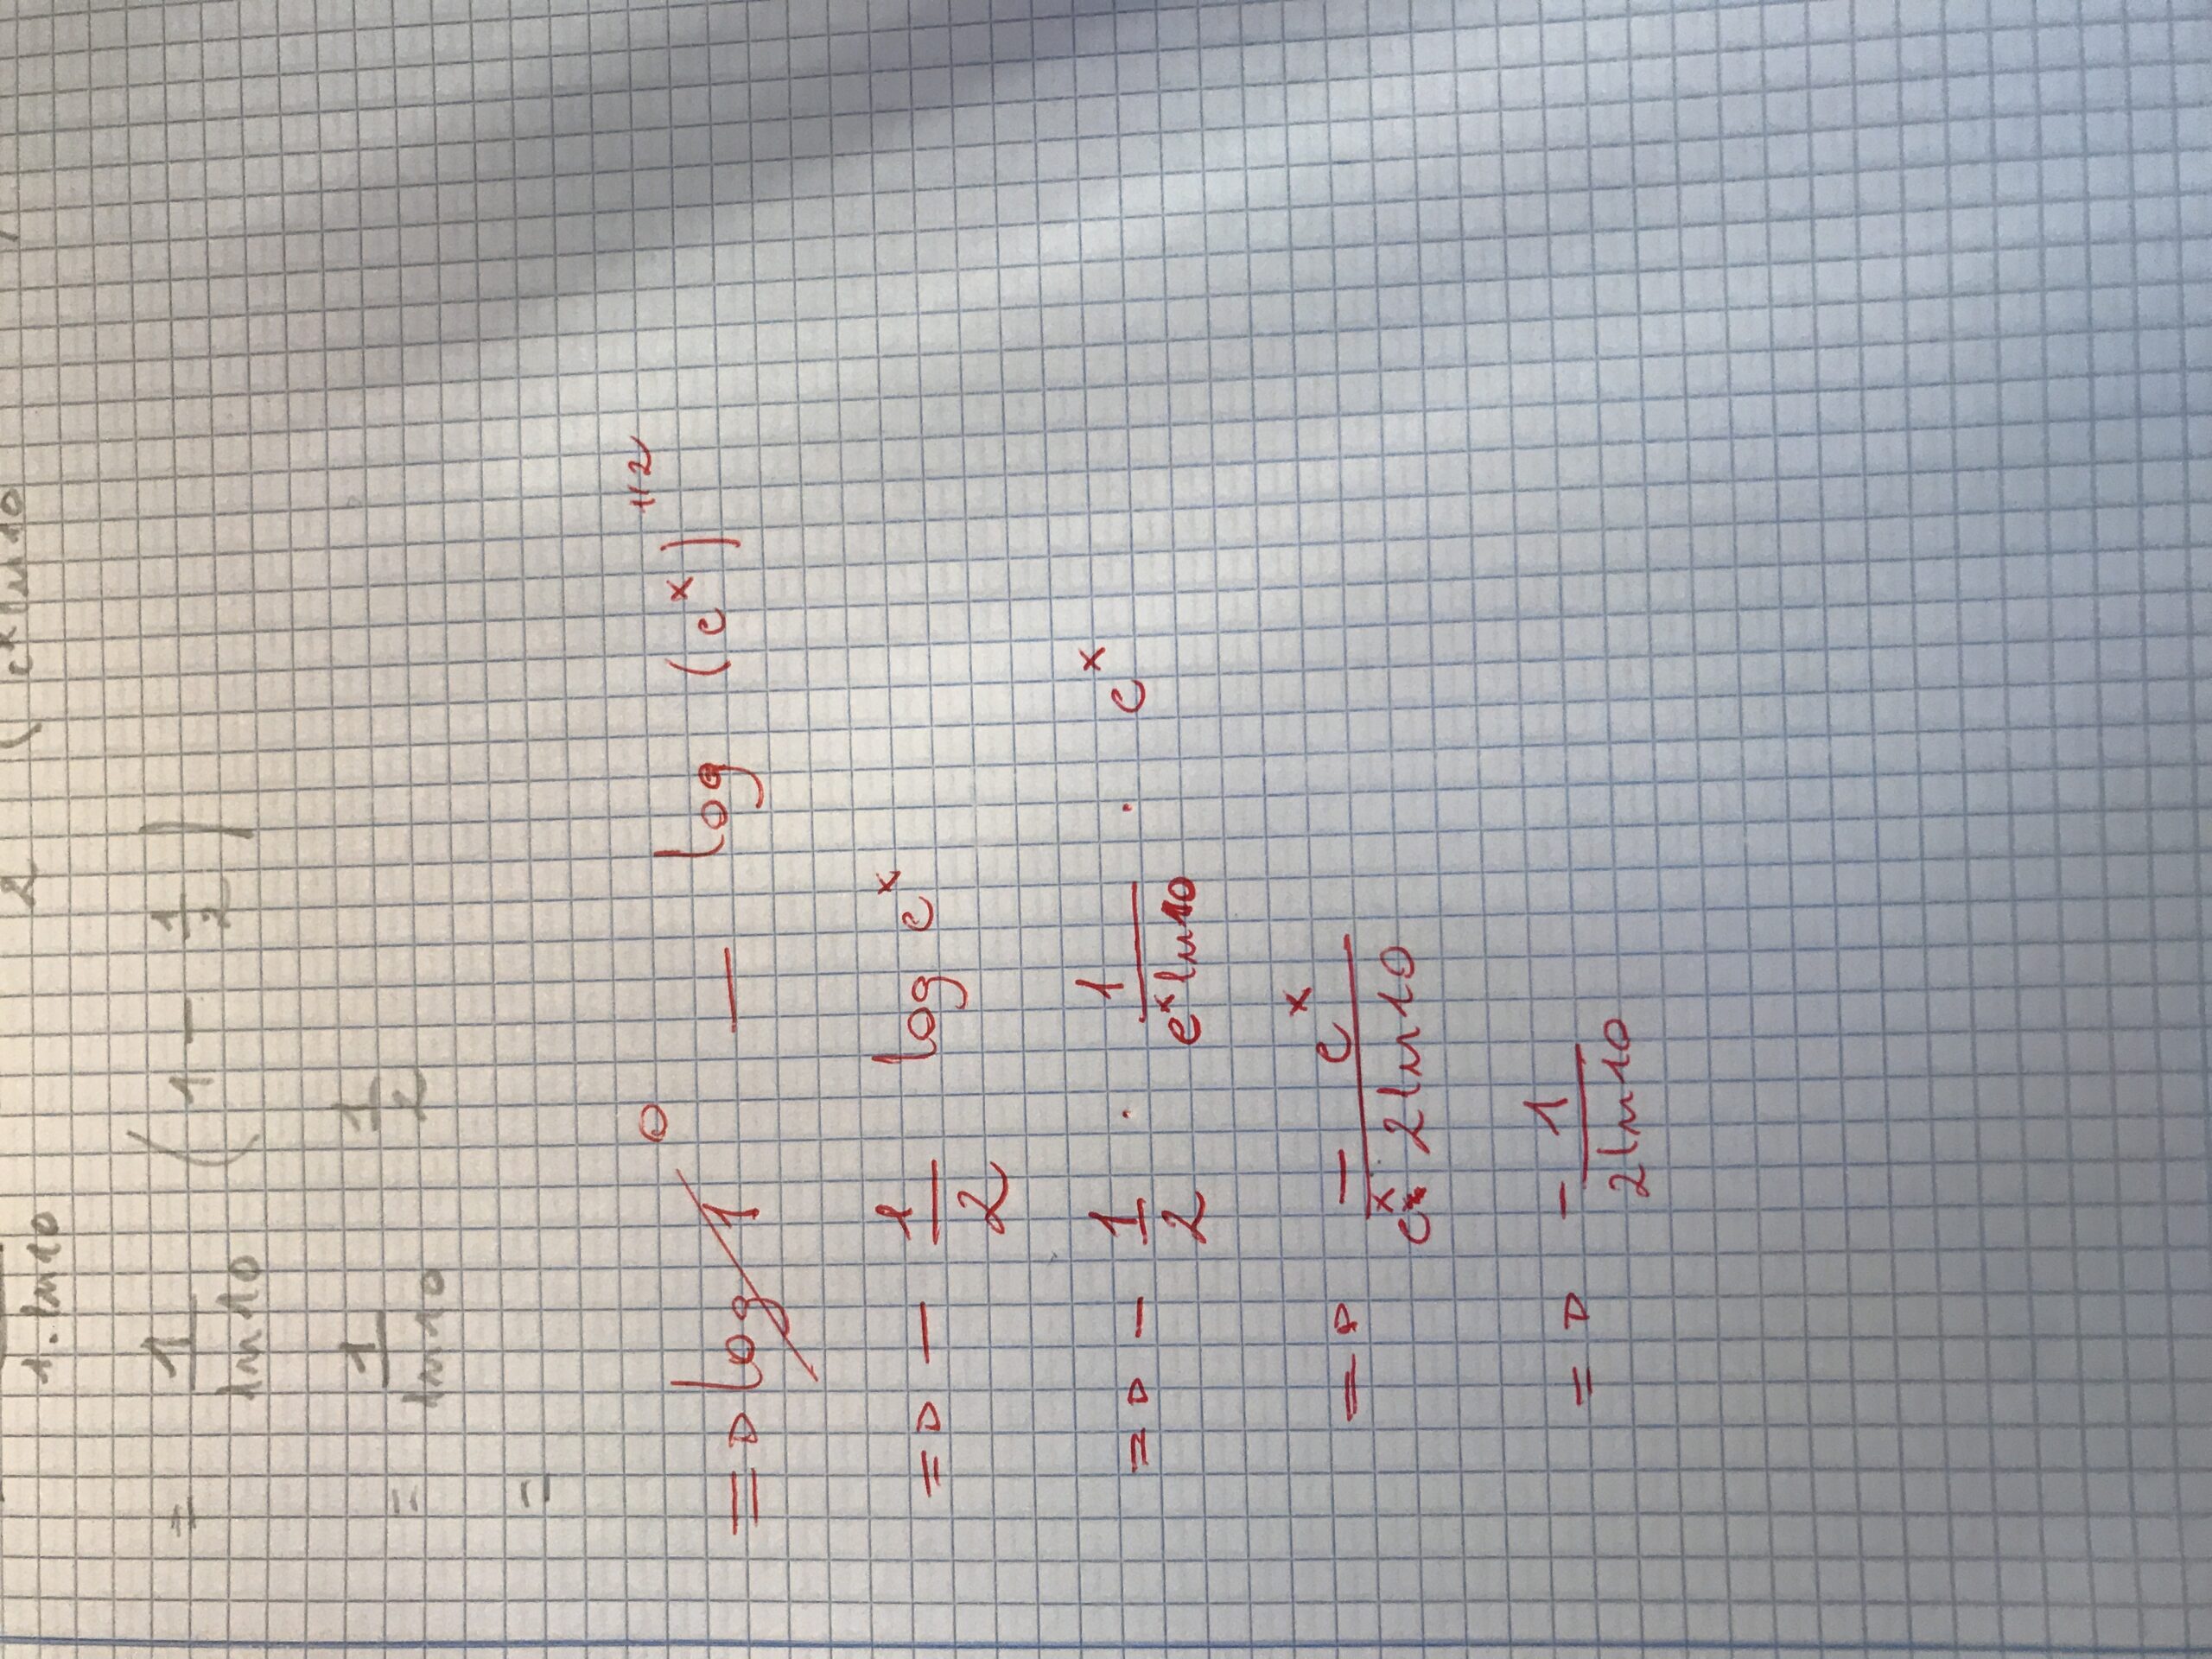 1 · ln10 2 (eˣ ln10
= 1/ln10 (1 - 1/2)
= 1/ln10 1/2
=
=> log 1 0 - log (eˣ)^1/2
=> - 1/2 log eˣ
=> - 1/2 · 1/(eˣ ln10) · eˣ
=> - eˣ/(eˣ 2 ln10)
=> - 1/(2 ln10)